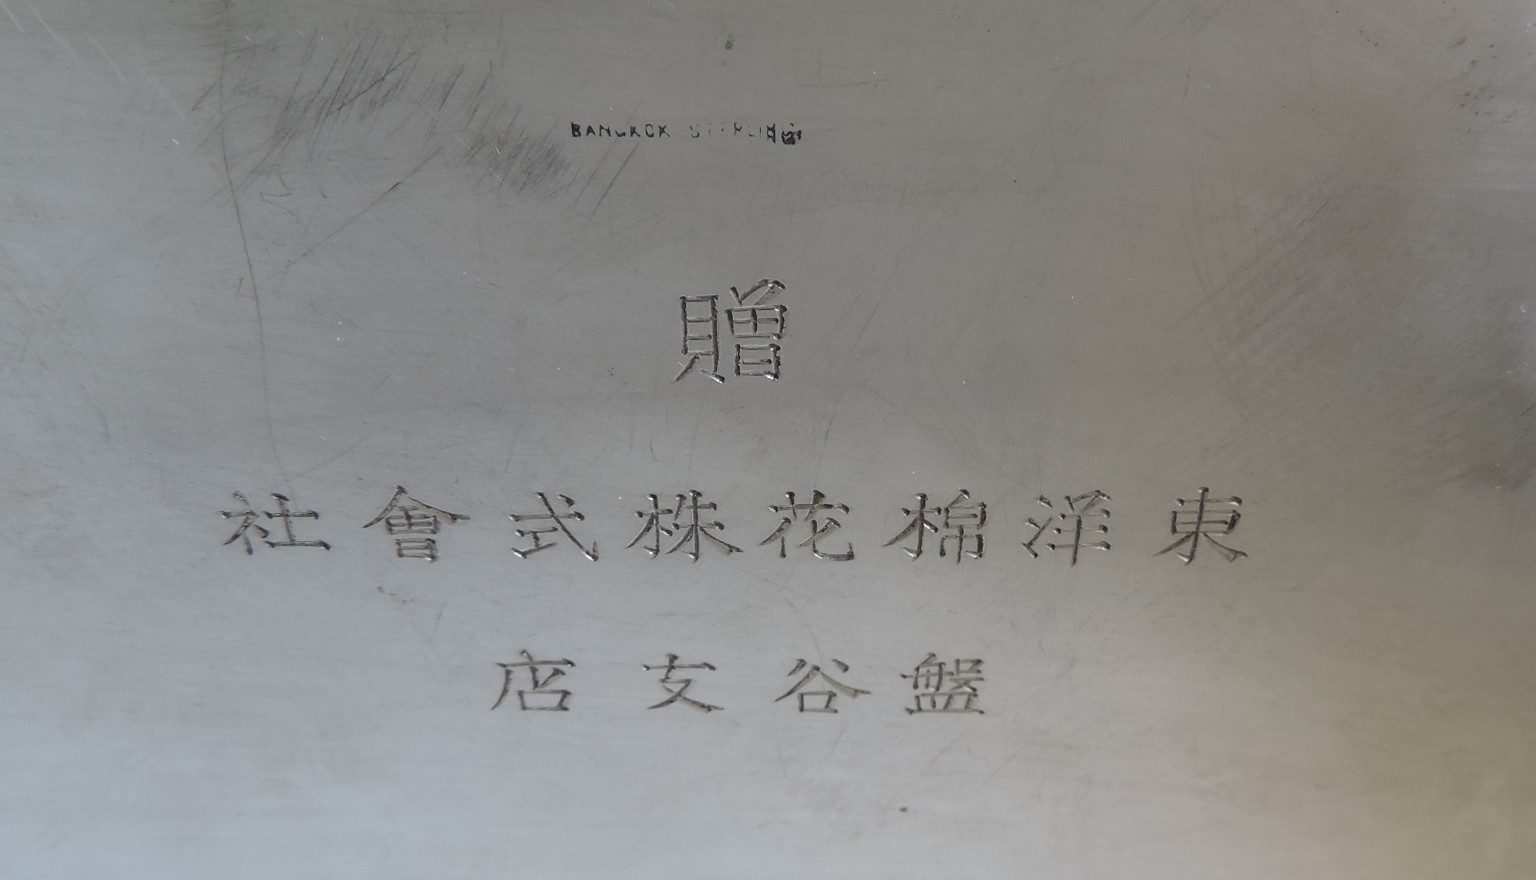 BANGKOK STERLING
贈
東洋棉花株式會社
盤谷支店